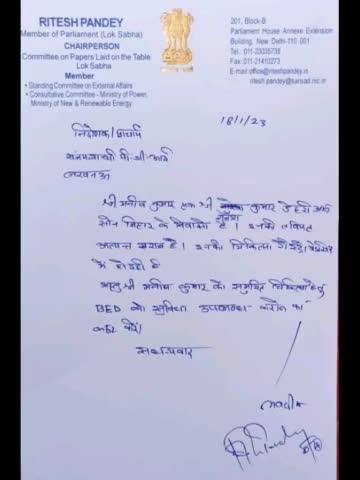 RITESH PANDEY
Member of Parliament (Lok Sabha)
CHAIRPERSON
Committee on Papers Laid on the Table
Lok Sabha
Member
• Standing Committee on External Affairs
• Consultative Committee - Ministry of Power,
Ministry of New & Renewable Energy
201, Block-B
Parliament House Annexe Extension
Building, New Delhi-110 001
Tel.: 011-23035738
Fax: 011-21410273
E-mail office@riteshpandey.in
ritesh.pandey@sansad.nic.in
18/1/23
निदेशक/प्राचार्य
संजयगांधी पी जी आई
लखनऊ
श्री मनीष कुमार कुमार
बिहार के निवासी है। इनकी तबियत
अत्यन्त खराब है। इनकी चिकित्सा
में हो रही है
अतः श्री मनीष कुमार को समुचित चिकित्सा हेतु
BED की सुविधा उपलब्ध कराने का
कष्ट करें।
सधन्यवाद